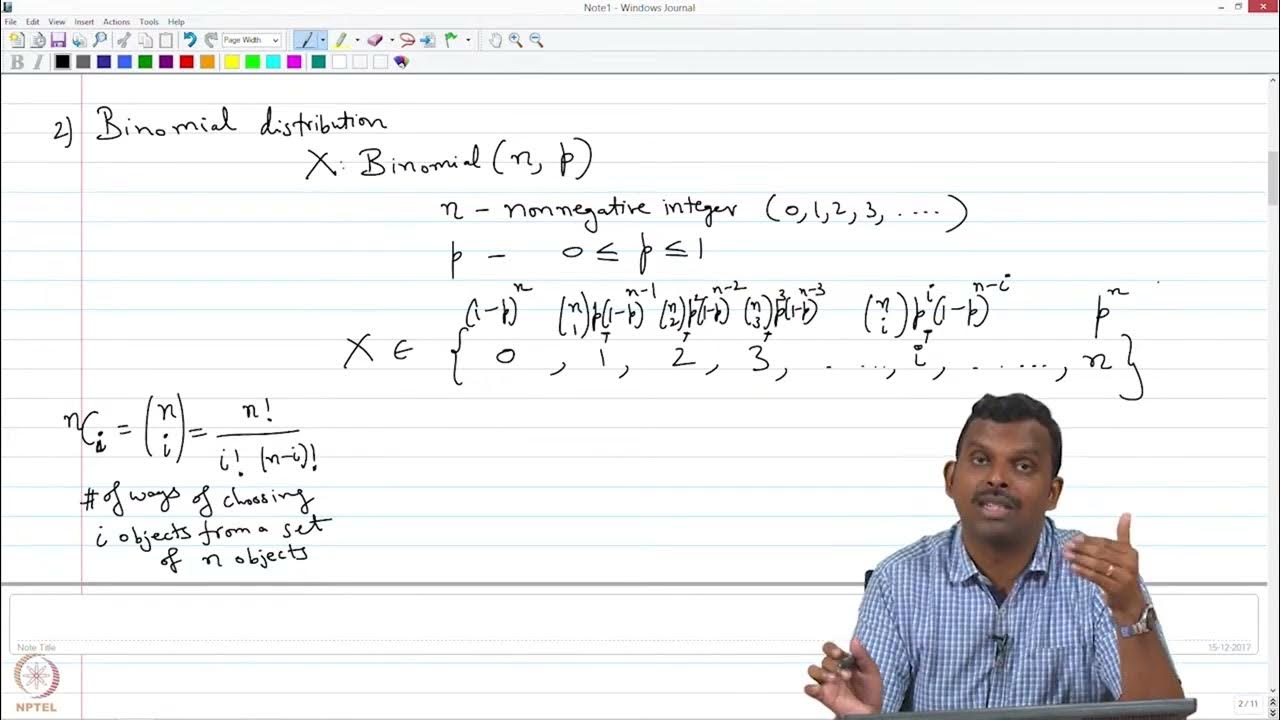 Note1 - Windows Journal
File Edit View Insert Actions Tools Help
Page Width
B I
2) Binomial distribution
X: Binomial (n, p)
n - nonnegative integer (0,1,2,3, ....)
p - 0 ≤ p ≤ 1
(1-p)^n (n 1)p(1-p)^{n-1} (n 2)p^2(1-p)^{n-2} (n 3)p^3(1-p)^{n-3} (n i)p^i(1-p)^{n-i} p^n
X ∈ { 0 , 1, 2, 3, ...., i, ......, n}
nCi = (n i) = n! / i! (n-i)!
# of ways of choosing
i objects from a set
of n objects
Note Title
15-12-2017
NPTEL
2 / 11